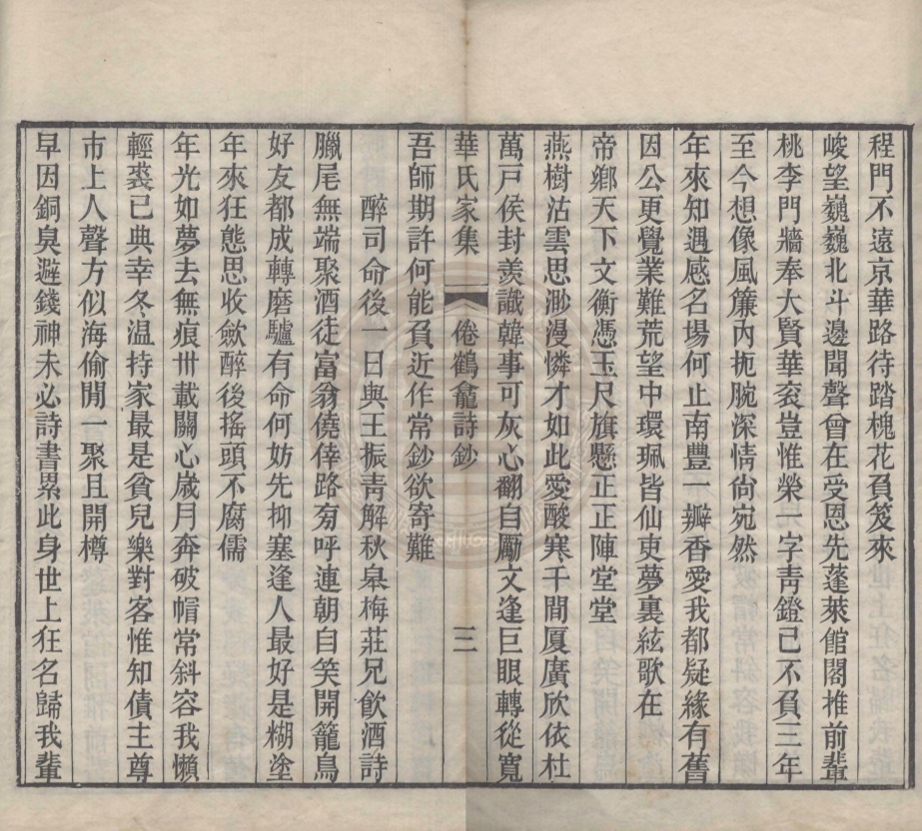 程門不遠京華路待踏槐花負笈來
峻望巍巍北斗邊聞聲曾在受恩先蓬萊館閣推前輩
桃李門牆奉大賢華衮豈惟榮一字靑鐙已不負三年
至今想像風簾內扼腕深情尙宛然
年來知遇感名場何止南豐一瓣香愛我都疑緣有舊
因公更覺業難荒望中環珮皆仙吏夢裏絃歌在
帝鄕天下文衡憑玉尺旗懸正正陣堂堂
燕樹沽雲思渺漫憐才如此愛酸寒千間厦廣欣依杜
萬戸侯封羨識韓事可灰心翻自勵文逢巨眼轉從寬
華氏家集 卷鶴龕詩鈔 三
吾師期許何能負近作常鈔欲寄難
醉司命後一日與王振靑解秋皐梅莊兄飮酒詩
臘尾無端聚酒徒富翁僥倖路旁呼連朝自笑開籠鳥
好友都成轉磨驢有命何妨先抑塞逢人最好是糊塗
年來狂態思收斂醉後搖頭不腐儒
年光如夢去無痕卅載關心歲月奔破帽常斜容我懶
輕裘已典幸冬温持家最是貧兒樂對客惟知債主尊
市上人聲方似海偷閒一聚且開樽
早因銅臭避錢神未必詩書累此身世上狂名歸我輩